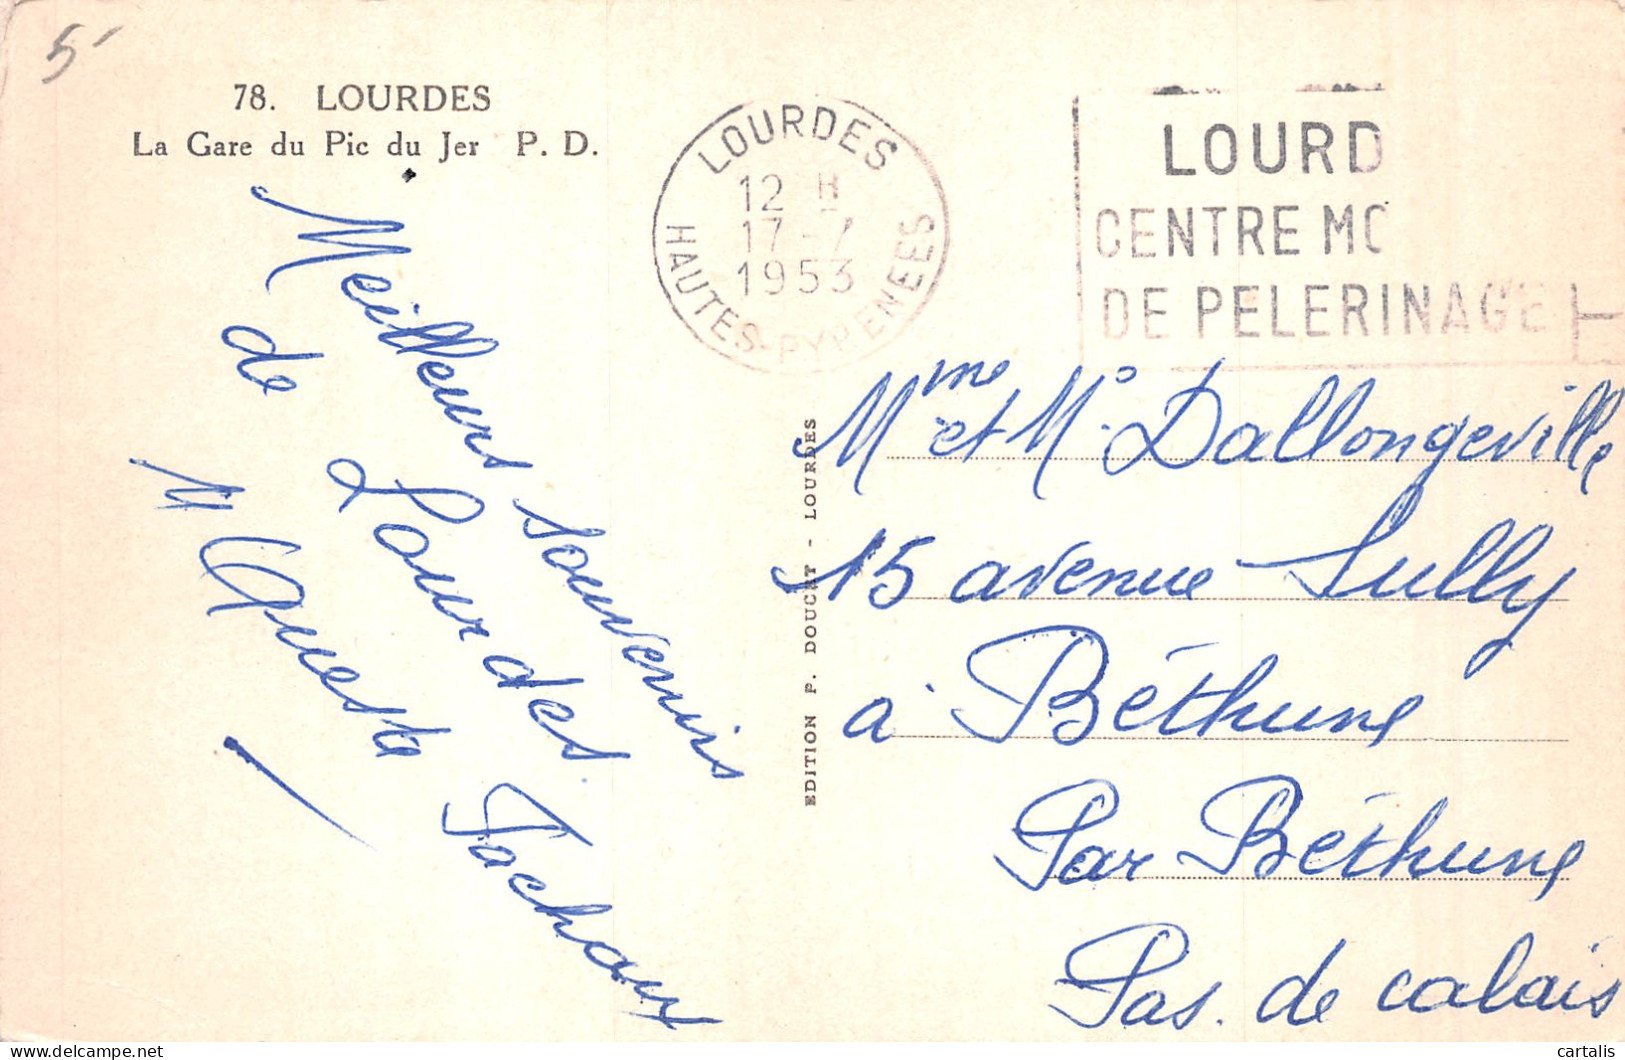 5-
78. LOURDES
La Gare du Pic du Jer P. D.
LOURDES
12 H
17-7
1953
HAUTES-PYRENEES
LOURD
CENTRE MO
DE PELERINAGE
Meilleurs souvenirs
de Lourdes.
M Queste
EDITION P. DOUCET - LOURDES
Mme et Mr Dallongeville
15 avenue Sully
à Béthune
Par Béthune
Pas. de calais
cartalis